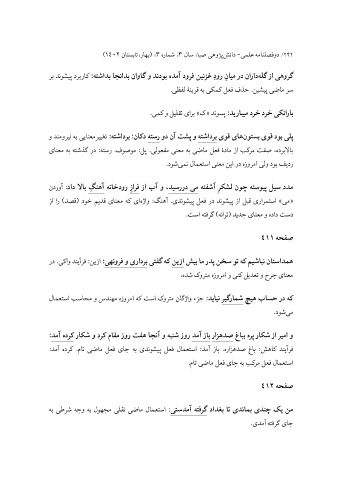 ۲۴۲/ دوفصلنامه علمی- دانش‌پژوهی صبا، سال ۳، شماره ۳، (بهار، تابستان ۱۴۰۲)
گروهی از گله‌داران در میان رودِ غزنین فرود آمده بودند و گاوان بدانجا بداشته: کاربرد پیشوند بر
سر ماضی پیشین. حذف فعل کمکی به قرینه لفظی.
بارانکی خرد خرد میبارید: پسوند «ک» برای تقلیل و کمی.
پلی بود قوی بستون‌های قوی برداشته و پشت آن دو رسته دکان: برداشته: تغییر معنایی به نیرومند و
بالابرده، صفت مرکب از مادۀ فعل ماضی به معنی مفعولی. پل: موصوف. رسته: در گذشته به معنای
ردیف بود ولی امروزه در این معنی استعمال نمی‌شود.
مدد سیل پیوسته چون لشکر آشفته می دررسید، و آب از فراز رودخانه آهنگِ بالا داد: آوردن
«می» استمراری قبل از پیشوند در فعل پیشوندی. آهنگ: واژه‌ای که معنای قدیم خود (قصد) را از
دست داده و معنای جدید (ترانه) گرفته است.
صفحه ۴۱۱
همداستان نباشیم که تو سخن پدر ما بیش ازین که گفتی برداری و فرونهی: ازین: فرآیند واکی. در
معنای جرح و تعدیل کنی و امروزه متروک شده.
که در حساب هیچ شمارگیر نیاید: جزء واژگان متروک است که امروزه مهندس و محاسب استعمال
می‌شود.
و امیر از شکار پره بباغ صدهزار باز آمد روز شنبه و آنجا هفت روز مقام کرد و شکار کرده آمد:
فرآیند کاهش: باغ صدهزاره. باز آمد: استعمال فعل پیشوندی به جای فعل ماضی تام. کرده آمد:
استعمال فعل مرکب به جای فعل ماضی تام.
صفحه ۴۱۲
من یک چندی بماندی تا بغداد گرفته آمدستی: استعمال ماضی نقلی مجهول به وجه شرطی به
جای گرفته آمدی.